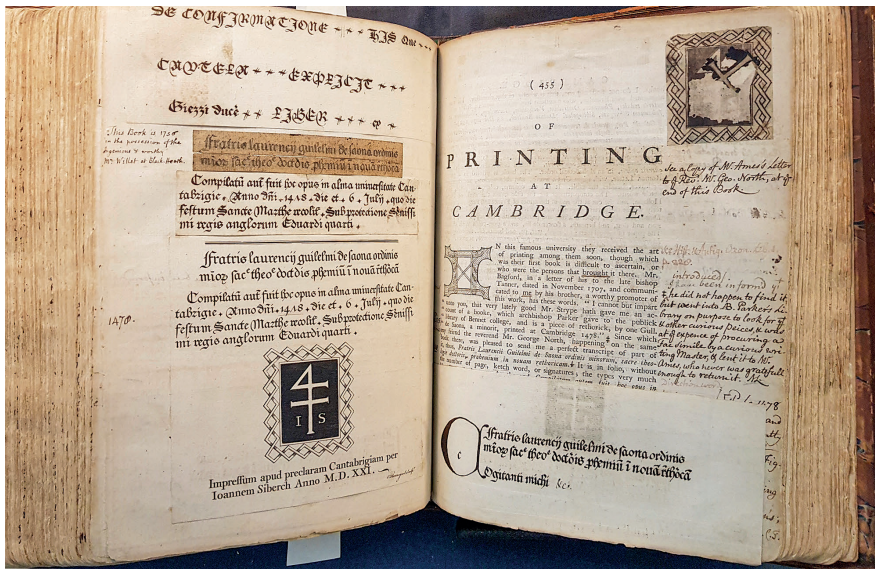 DE CONFIRMATIONE + + + HIS Que + +
CAUTELA + + + EXPLICIT + + +
Giezzi ducê + + LIBER + + +
This Book is 1756
in the possession of the
ingenious & worthy
Mr. Willet at Black-heath.
fratris laurencij guilelmi de saona ordinis
mīoȝ sac̄ theo᷎ doctoris ꝓhemiū ī nouā rethōcā
Compilatū aūt fuit hoc opus in alma uniuersitate Can-
tabrigie . Anno dn̄i . 1478 . die et . 6 . July . quo die
festum Sancte Marthe recolit᷎ . Sub protectione Sēnissi
mi regis anglorum Eduardi quarti .
fratris laurencij guilelmi de saona ordinis
mīoȝ sac̄ theo᷎ doctōis ꝓhemiū ī nouā rethōcā
Compilatū aūt fuit hoc opus in alma uniuersitate Can-
tabrigie . Anno dn̄i . 1478 . die et . 6 . July . quo die
festum Sancte Marthe recolit᷎ . Sub protectione Sēnissi
mi regis anglorum Eduardi quarti .
1478.
4
I S
Impressum apud preclaram Cantabrigiam per
Ioannem Siberch Anno M.D.XXI.
( 435 )
OF
PRINTING
AT
CAMBRIDGE.
see a Copy of Mr. Ames's Letter
to ye Revd. Mr. Geo. North, at ye
end of this Book
IN this famous university they received the art
of printing among them soon, though which
was their first book is difficult to ascertain, or
who were the persons that brought it there. Mr.
Bagford, in a letter of his to the late bishop
Tanner, dated in November 1707, and communi-
cated to me by his brother, a worthy promoter of
this work, has these words, "I cannot but impart
unto you, that very lately good Mr. Strype hath gave me an ac-
count of a book, which archbishop Parker gave to the public
library of Bennet college, and is a piece of rethorick, by one Gull.
de Saona, a minorit, printed at Cambridge 1478." Since which
my friend the reverend Mr. George North, happening on the same
book there, was pleased to send me a perfect transcript of part of
it, thus, Fratris Laurencii Guilelmi de Saona ordinis minorum, sacre theo-
logie doctoris, prohemium in novam rethoricam. It is in folio, without
the number of page, ketch word, or signatures, the types very much
introduced/
I have been inform'd
yt he did not happen to find it,
but went into B. Parkers Li-
brary on purpose to look for yt
& other curious Peices, & was
at ye expence of procuring a
Fac simile by a curious wri-
ting Master, & lent it to Mr.
Ames, who never was gratefull
enough to return it.
fratris laurencij guilelmi de saona ordinis
mīoȝ sac̄ theo᷎ doctōis ꝓhemiū ī nouā rethōcā
Cogitanti michi &c.